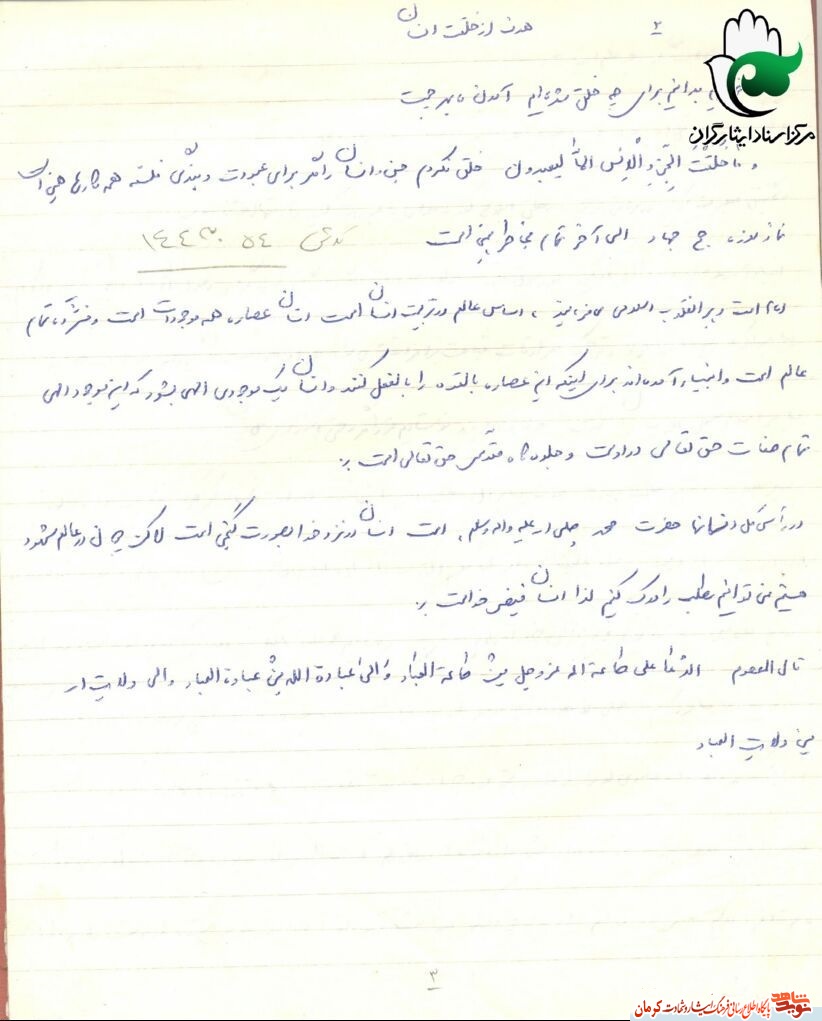 ۲ هدف از خلقت انسان
مرکز اسناد ایثارگران
بدانیم برای چه خلق شده‌ایم آمدن ما بهر چیست
و ما خَلَقْتُ الجِنَّ و الْاِنْسَ اِلّا لیعبدون خلق نکردم جن و انسان را مگر برای عبودت و بندگی فلسفه همه کارها همین است
نماز روزه حج جهاد الی آخر تمام بخاطر همین است کدش ۱۴۴۳۰۵۴
امام امت و پیر انقلاب اسلامی میفرمایند ، اساس عالم در تربیت انسان است انسان عصاره همه موجودات است و فشرده تمام
عالم است و انبیاء آمده‌اند برای اینکه این عصاره بالقوه را بالفعل کنند و انسان یک موجودی الهی بشود که این موجود الهی
تمام صفات حق تعالی در اوست و جلوه‌گاه مقدس حق تعالی است
در رأس کل انسانها حضرت محمد صلی ا... علیه واله وسلم است انسان در نزد خدا بصورت گنجی است لاکن چون در عالم مشهود
هستیم نمی توانیم مطلب را درک کنیم لذا انسان فیض خداست
قال المعصوم طاعة اله عزوجل مِنْ طاعة العِبٰاد وَ الیٰ عبادة الله مِنْ عبادة العباد والی ولایتِ ا...
مِن ولایتِ العباد
۳
نوید شاهد پایگاه اطلاع رسانی فرهنگ ایثار و شهادت کرمان